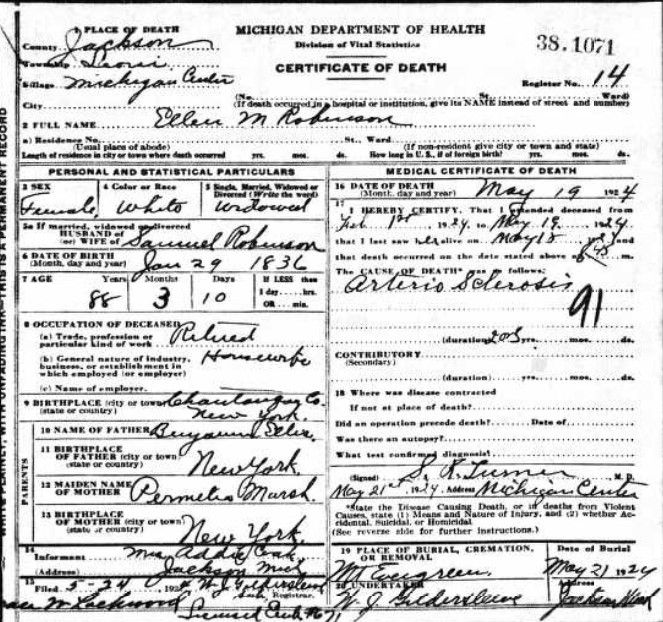 PLACE OF DEATH
County Jackson
Township Leoni
Village Michigan Center
City
MICHIGAN DEPARTMENT OF HEALTH
Division of Vital Statistics
CERTIFICATE OF DEATH
38.1071
Register No. 14
(No. St. Ward)
(If death occurred in a hospital or institution, give its NAME instead of street and number)
2 FULL NAME Ellen M Robinson
a) Residence No. St., Ward.
(Usual place of abode) (If non-resident give city or town and state)
Length of residence in city or town where death occurred yrs. mos. ds. How long in U. S., if of foreign birth? yrs. mos. ds.
PERSONAL AND STATISTICAL PARTICULARS
3 SEX 4 Color or Race 5 Single, Married, Widowed or
Divorced (Write the word)
Female White Widowed
5a If married, widowed or divorced
HUSBAND of
(or) WIFE of Samuel Robinson
6 DATE OF BIRTH
(Month, day and year) Jan 29 1836
7 AGE Years Months Days If LESS than
1 day hrs.
OR min.
88 3 10
8 OCCUPATION OF DECEASED
(a) Trade, profession or
particular kind of work Retired
(b) General nature of industry,
business, or establishment in
which employed (or employer) Housewife
(c) Name of employer
9 BIRTHPLACE (city or town) Chautauqua Co.
(state or country) New York.
PARENTS
10 NAME OF FATHER Benjamin
11 BIRTHPLACE
OF FATHER (city or town)
(state or country) New York.
12 MAIDEN NAME
OF MOTHER Permelia Marsh.
13 BIRTHPLACE
OF MOTHER (city or town)
(state or country) New York.
14
Informant Mrs Addie
(Address) Jackson Mich
15
Filed 5-24 1924 W J Gildersleeve
Registrar.
M Lockwood
MEDICAL CERTIFICATE OF DEATH
16 DATE OF DEATH
(Month, day and year) May 19 1924
17
I HEREBY CERTIFY, That I attended deceased from
Feb 1st 1924, to May 19 1924
that I last saw her alive on May 18 and
that death occurred on the date stated above at
The CAUSE OF DEATH* was as follows:
Arterio Sclerosis
91
(duration) yrs. mos. ds.
CONTRIBUTORY
(Secondary)
(duration) yrs. mos. ds.
18 Where was disease contracted
If not at place of death?
Did an operation precede death? Date of
Was there an autopsy?
What test confirmed diagnosis?
(Signed) S. R. Turner M. D.
May 21st 1924 Address Michigan Center
*State the Disease Causing Death, or in deaths from Violent
Causes, state (1) Means and Nature of Injury, and (2) whether Ac-
cidental, Suicidal, or Homicidal.
(See reverse side for further instructions.)
19 PLACE OF BURIAL, CREMATION,
OR REMOVAL Date of Burial
Mt Evergreen. May 21 1924
20 UNDERTAKER
W. J. Gildersleeve Jackson Mich